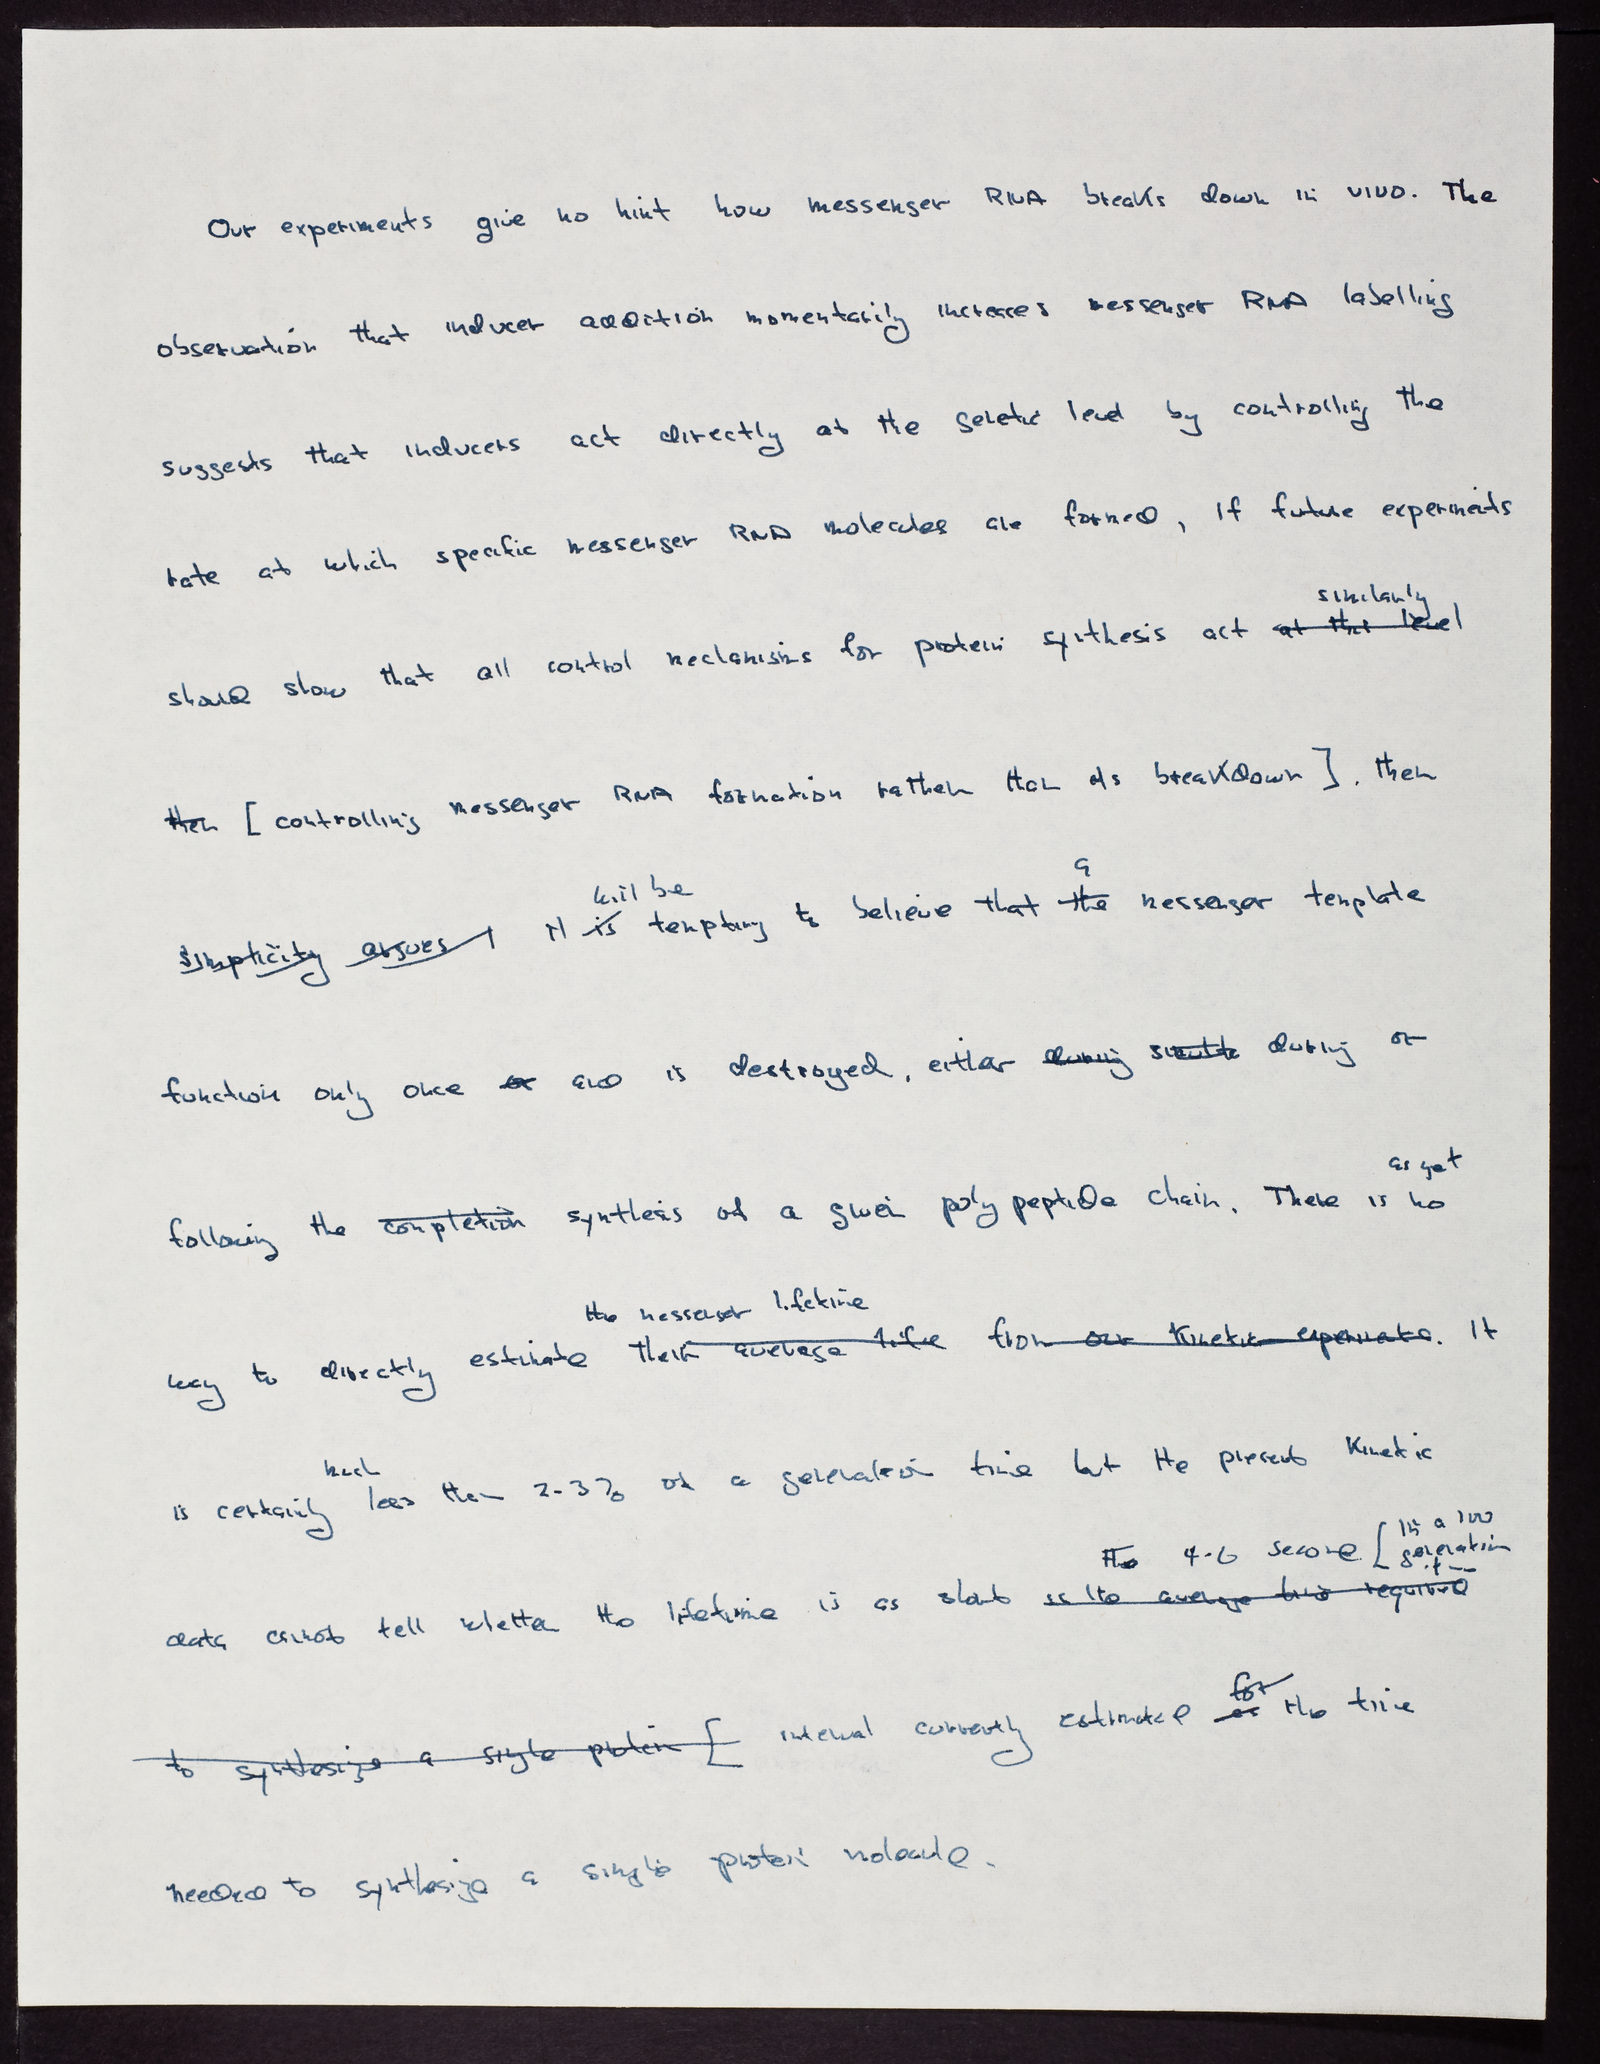 Our experiments give no hint how messenger RNA breaks down in vivo. The
observation that inducer addition momentarily increases messenger RNA labelling
suggests that inducers act directly at the genetic level by controlling the
rate at which specific messenger RNA molecules are formed, If future experiments
similarly
should show that all control mechanisms for protein synthesis act at this level
then [ controlling messenger RNA formation rather than its breakdown ]. then
will be a
simplicity argues it is tempting to believe that the messenger template
function only once or and is destroyed, either during during or
as yet
following the completion synthesis of a given polypeptide chain. There is no
the messenger lifetime
way to directly estimate their average life from our kinetic experiments. It
much
is certainly less than 2-3% of a generation time but the present Kinetic
the 4-6 second [ in a 100
generation
data cannot tell whether the lifetime is as short as the average time required
for
to synthesize a single protein [ interval currently estimated as the time
needed to synthesize a single protein molecule.